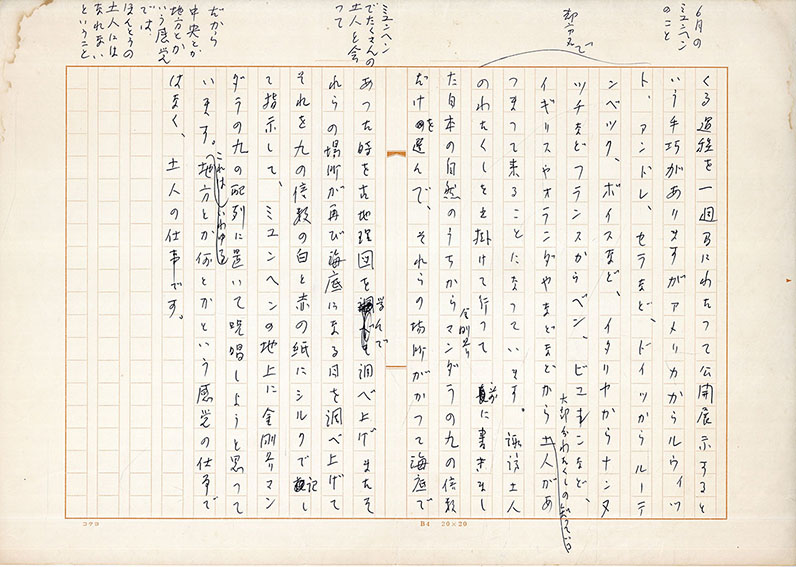 6月の
ミュンヘン
のこと
却立えで
ミュンヘン
でたくさんの
土人を会
って
だから
中央とか
地方とか
いう感覚
では、
ほんとうの
土人には
なれない
ということ
くる過程を一週間にわたって公開展示すると
いう手巧がありますがアメリカからルウィッ
ト、アンドレ、セラなど、ドイツからルーテ
ンベック、ボイスなど、イタリヤからナンヌ
ツチなどフランスからベン、ビユランなど、
イギリスやオランダやなどなどから土人があ
大部分わたくしの知って
つまって来ることになっています。諏訪土人
のわたくしも出掛けて行って
た日本の自然のうちからマンダラの九の倍数
金剛界
に書きまし
だけを選んで、それらの場所がかつて海底で
あった時を古地理図を学んで調べ上げまたそ
れらの場所が再び海底になる日を調べ上げて
それを九の倍数の白と赤の紙にシルクで記し
て指示して、ミュンヘンの地上に金剛界マン
ダラの九の配列に置いて吮唱しようと思って
います。これはいわゆる地方とか何とかという感覚の仕事で
はなく、土人の仕事です。
コクヨ
B4 20×20